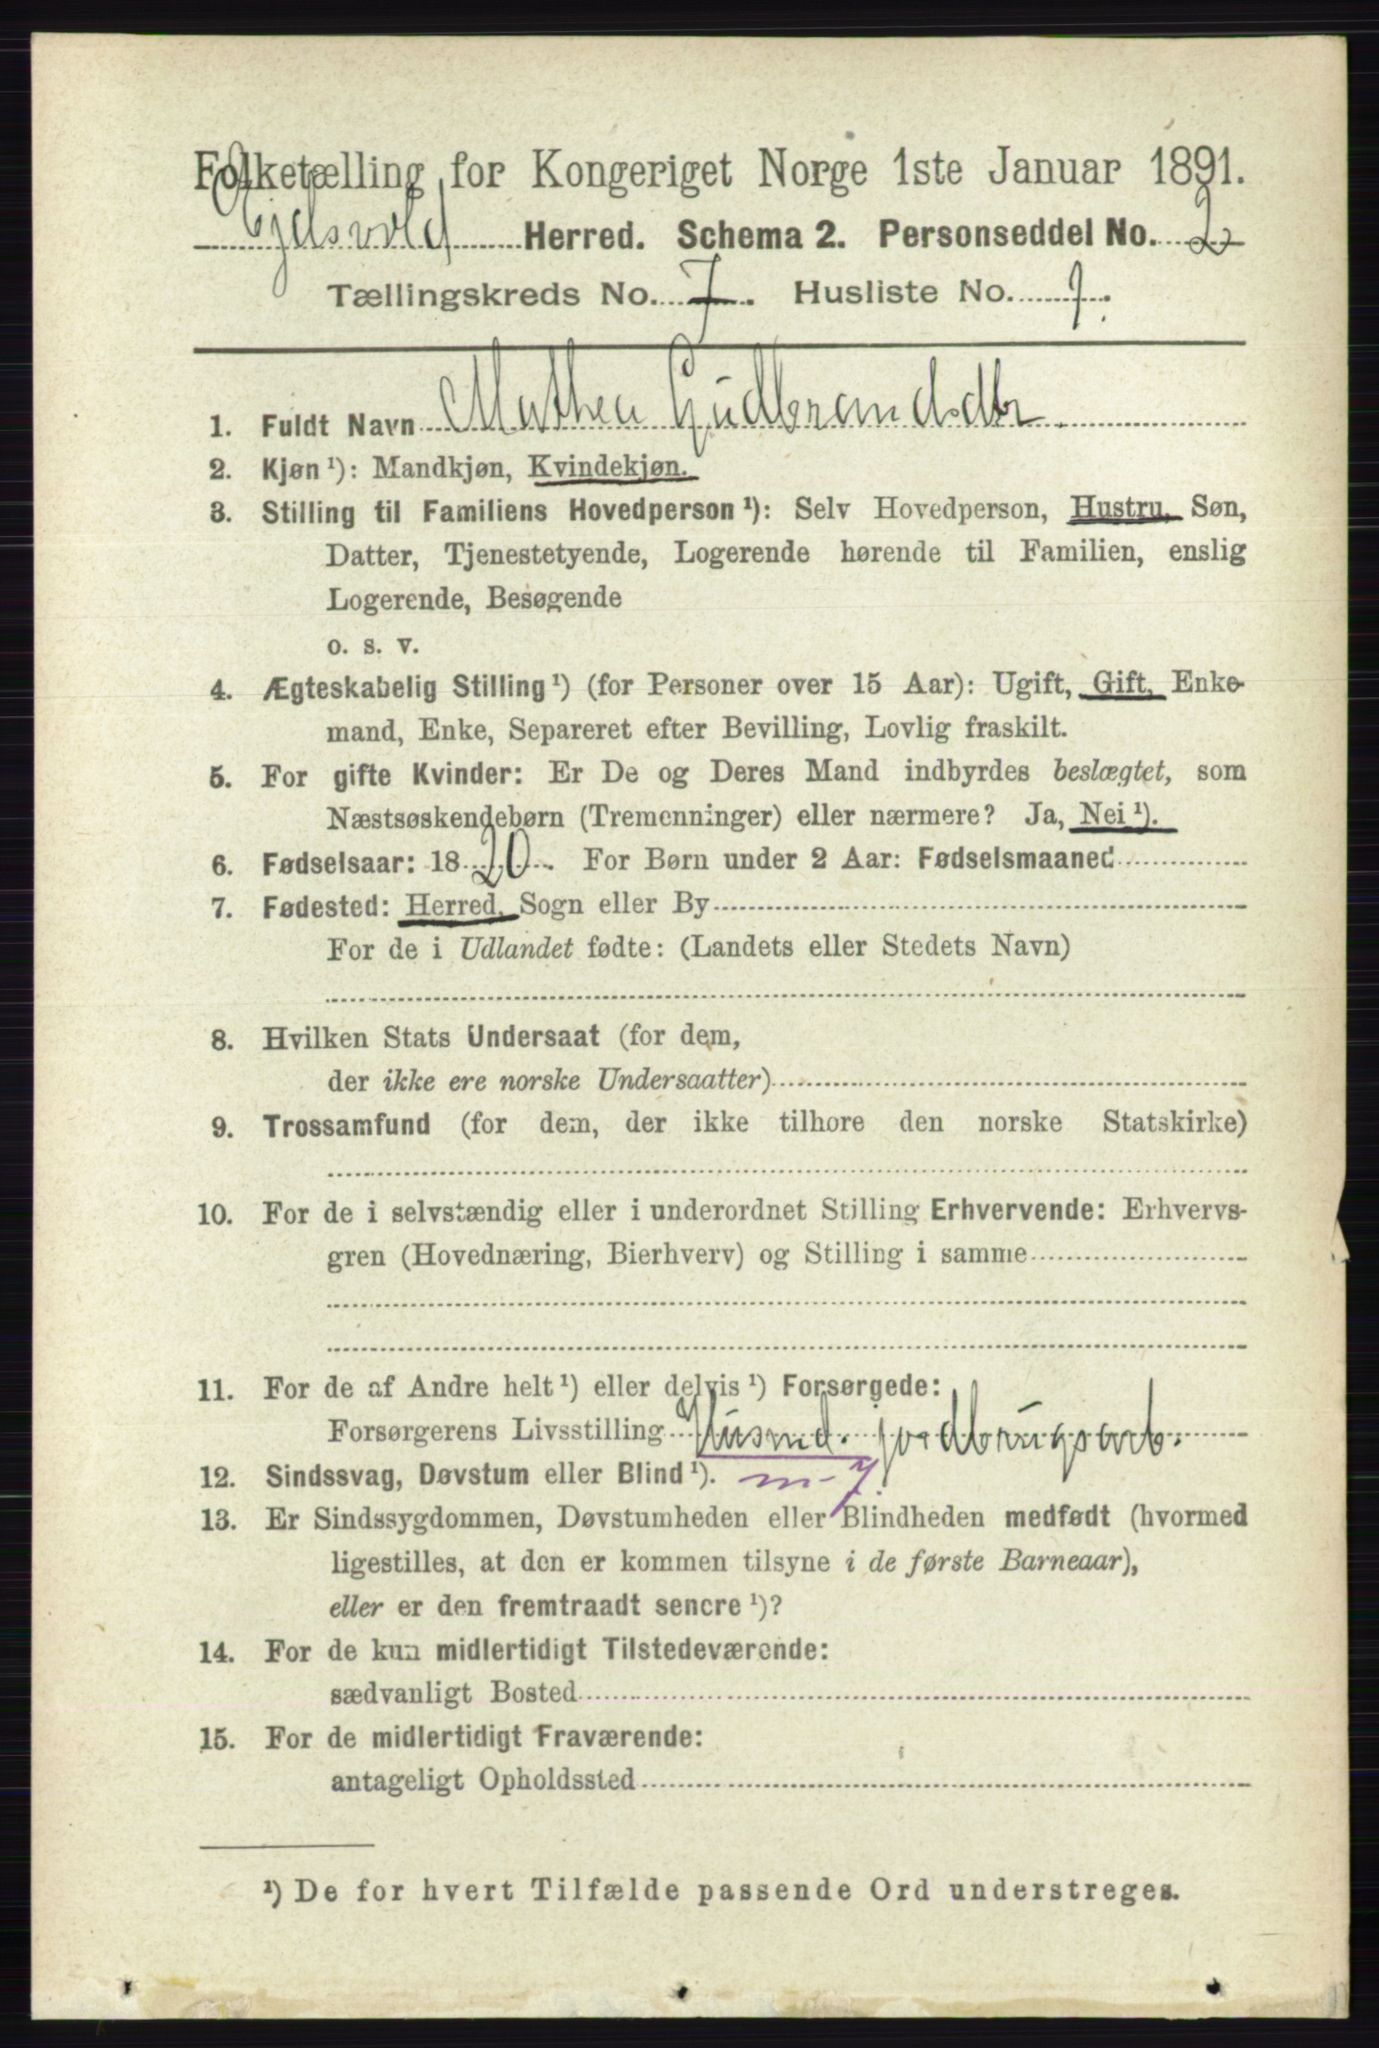 Folketælling for Kongeriget Norge 1ste Januar 1891.
Ejdsvold Herred. Schema 2. Personseddel No. 2
Tællingskreds No. 7. Husliste No. 7.
1. Fuldt Navn Mathea Gudbrandsdtr.
2. Kjøn ¹): Mandkjøn, Kvindekjøn.
3. Stilling til Familiens Hovedperson ¹): Selv Hovedperson, Hustru, Søn,
Datter, Tjenestetyende, Logerende hørende til Familien, enslig
Logerende, Besøgende
o. s. v.
4. Ægteskabelig Stilling ¹) (for Personer over 15 Aar): Ugift, Gift, Enke-
mand, Enke, Separeret efter Bevilling, Lovlig fraskilt.
5. For gifte Kvinder: Er De og Deres Mand indbyrdes beslægtet, som
Næstsøskendebørn (Tremenninger) eller nærmere? Ja, Nei ¹).
6. Fødselsaar: 1820. For Børn under 2 Aar: Fødselsmaaned
7. Fødested: Herred, Sogn eller By
For de i Udlandet fødte: (Landets eller Stedets Navn)
8. Hvilken Stats Undersaat (for dem,
der ikke ere norske Undersaatter)
9. Trossamfund (for dem, der ikke tilhøre den norske Statskirke)
10. For de i selvstændig eller i underordnet Stilling Erhvervende: Erhvervs-
gren (Hovednæring, Bierhverv) og Stilling i samme
11. For de af Andre helt ¹) eller delvis ¹) Forsørgede:
Forsørgerens Livsstilling Husmd. jordbrugsarb.
12. Sindssvag, Døvstum eller Blind ¹). m-7
13. Er Sindssygdommen, Døvstumheden eller Blindheden medfødt (hvormed
ligestilles, at den er kommen tilsyne i de første Barneaar),
eller er den fremtraadt senere ¹)?
14. For de kun midlertidigt Tilstedeværende:
sædvanligt Bosted
15. For de midlertidigt Fraværende:
antageligt Opholdssted
¹) De for hvert Tilfælde passende Ord understreges.